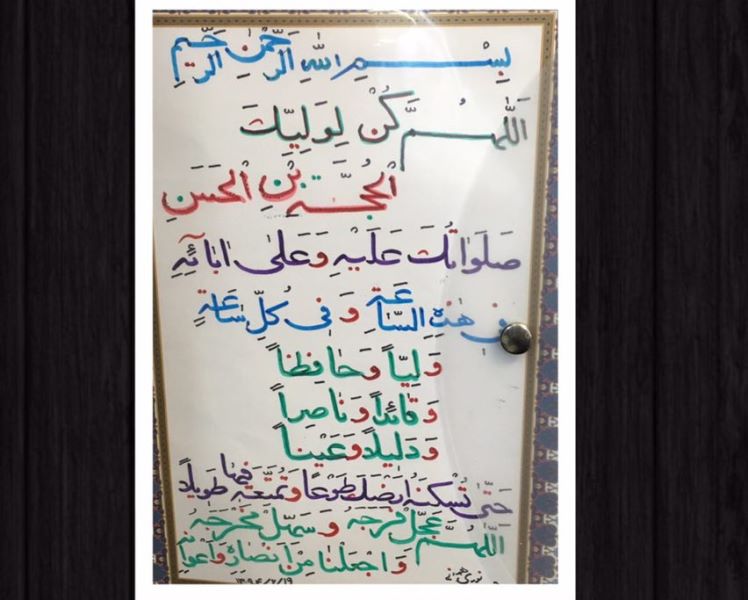 بِسْمِ اللهِ الرَّحْمٰنِ الرَّحِيمِ
اَللّٰهُمَّ كُنْ لِوَلِيِّكَ
الْحُجَّةِ بْنِ الْحَسَنِ
صَلَوَاتُكَ عَلَيْهِ وَعَلىٰ اٰبَائِهِ
فِي هٰذِهِ السَّاعَةِ وَفِي كُلِّ سَاعَةٍ
وَلِيّاً وَحَافِظاً
وَقَائِداً وَنَاصِراً
وَدَلِيلاً وَعَيْناً
حَتّىٰ تُسْكِنَهُ اَرْضَكَ طَوْعاً وَتُمَتِّعَهُ فِيهَا طَوِيلاً
اَللّٰهُمَّ عَجِّلْ فَرَجَهُ وَسَهِّلْ مَخْرَجَهُ
وَاجْعَلْنَا مِنْ اَنْصَارِهِ وَاَعْوَانِهِ
۱۳۹۴/۲/۱۹ نوری